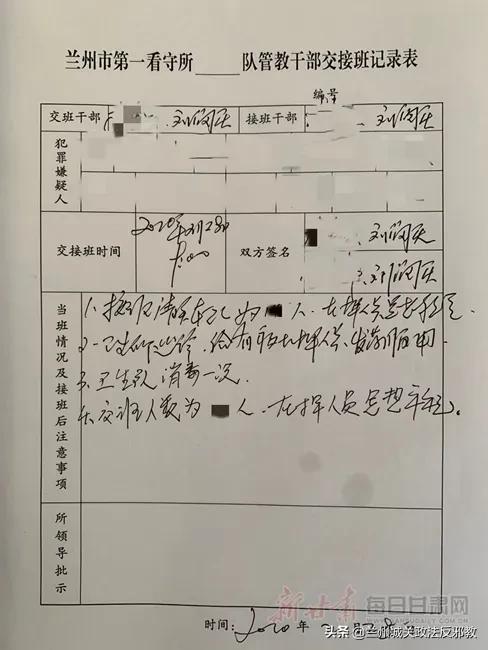 兰州市第一看守所____队管教干部交接班记录表
编号
交班干部 刘闻天 接班干部 刘闻天
犯罪嫌疑人
交接班时间 2020年 双方签名 刘闻天
刘闻天
当班情况及接班后注意事项
1、接班 人数为 人、在押人员思想稳定。
2、卫生所巡诊、给有 在押人员发药服用。
3、卫生队消毒一次。
4、交班人数为 人、在押人员思想平稳。
所领导批示
新甘肃 每日甘肃网
时间: 2020 年 2 月 28 日
头条 @兰州城关政法反邪教